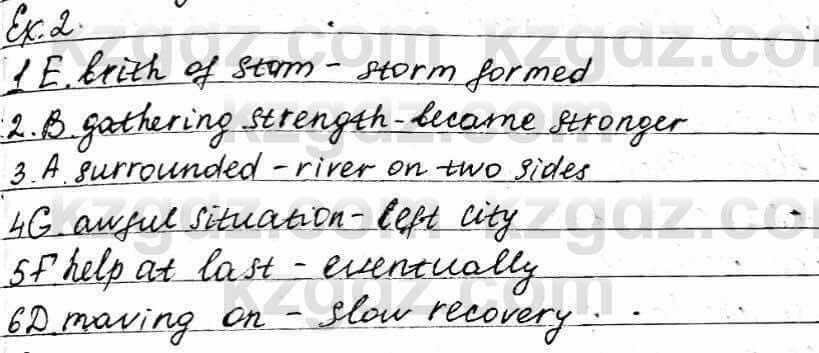 Ex. 2.
1 E. brith of stom - storm formed
2. B. gathering strength - became stronger
3. A. surrounded - river on two sides
4G awful situation - left city
5F help at last - eventually
6D moving on - slow recovery.
kzgdz.com